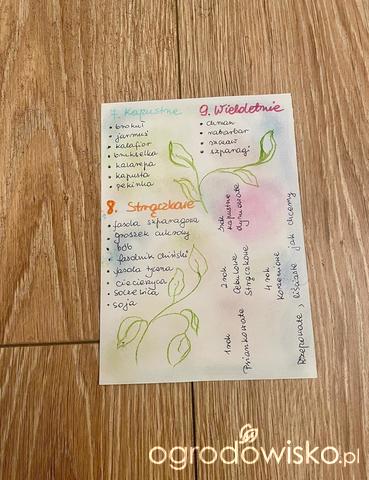 7. Kapustne
• brokuł
• jarmuż
• kalafior
• brukselka
• kalarepa
• kapusta
• pekinka
8. Strączkowe
• fasola szparagowa
• groszek cukrowy
• bób
• fasolnik chiński
• fasola tyczna
• ciecierzyca
• soczewica
• soja
9. Wieloletnie
• czosnek
• rabarbar
• szczaw
• szparagi
1 rok
Psiankowate
2 rok
Cebulowe
Strączkowe
3 rok
kapustne
dyniowate
4 rok
Korzeniowe
Rzepowate, liściaste jak chcemy
ogrodowisko.pl